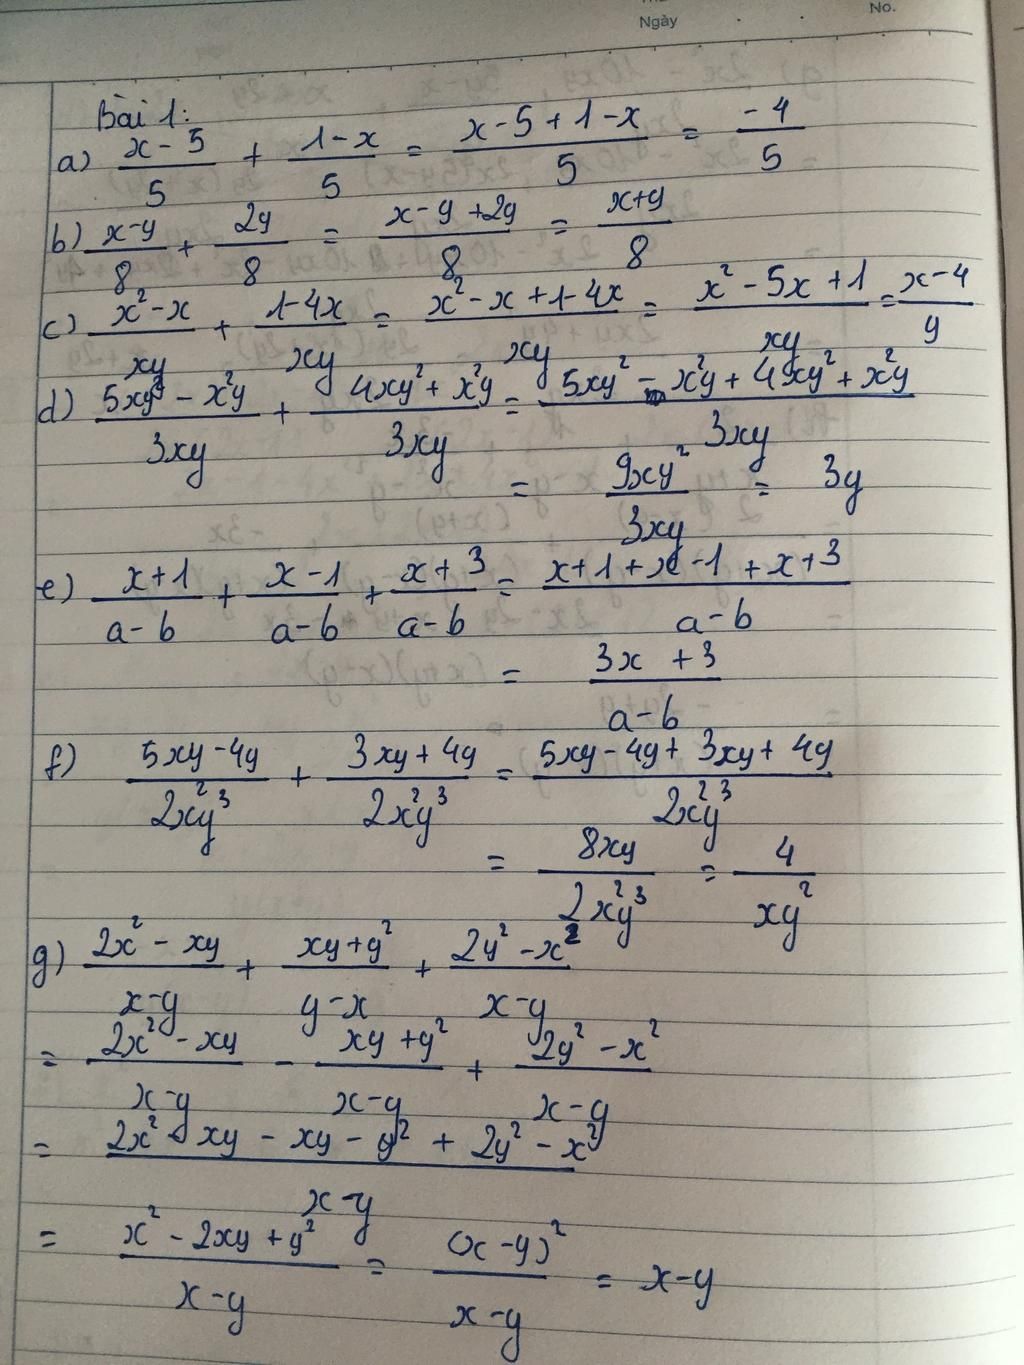 Ngày
No.
Bài 1:
a) \frac{x-5}{5} + \frac{1-x}{5} = \frac{x-5+1-x}{5} = \frac{-4}{5}
b) \frac{x-y}{8} + \frac{2y}{8} = \frac{x-y+2y}{8} = \frac{x+y}{8}
c) \frac{x^2-x}{xy} + \frac{1-4x}{xy} = \frac{x^2-x+1-4x}{xy} = \frac{x^2-5x+1}{xy} = \frac{x-4}{y}
d) \frac{5xy^2-x^2y}{3xy} + \frac{4xy^2+x^2y}{3xy} = \frac{5xy^2-x^2y+4xy^2+x^2y}{3xy}
= \frac{9xy^2}{3xy} = 3y
e) \frac{x+1}{a-b} + \frac{x-1}{a-b} + \frac{x+3}{a-b} = \frac{x+1+x-1+x+3}{a-b}
= \frac{3x+3}{a-b}
f) \frac{5xy-4y}{2x^2y^3} + \frac{3xy+4y}{2x^2y^3} = \frac{5xy-4y+3xy+4y}{2x^2y^3}
= \frac{8xy}{2x^2y^3} = \frac{4}{xy^2}
g) \frac{2x^2-xy}{x-y} + \frac{xy+y^2}{y-x} + \frac{2y^2-x^2}{x-y}
= \frac{2x^2-xy}{x-y} - \frac{xy+y^2}{x-y} + \frac{2y^2-x^2}{x-y}
= \frac{2x^2-xy-xy-y^2+2y^2-x^2}{x-y}
= \frac{x^2-2xy+y^2}{x-y} = \frac{(x-y)^2}{x-y} = x-y